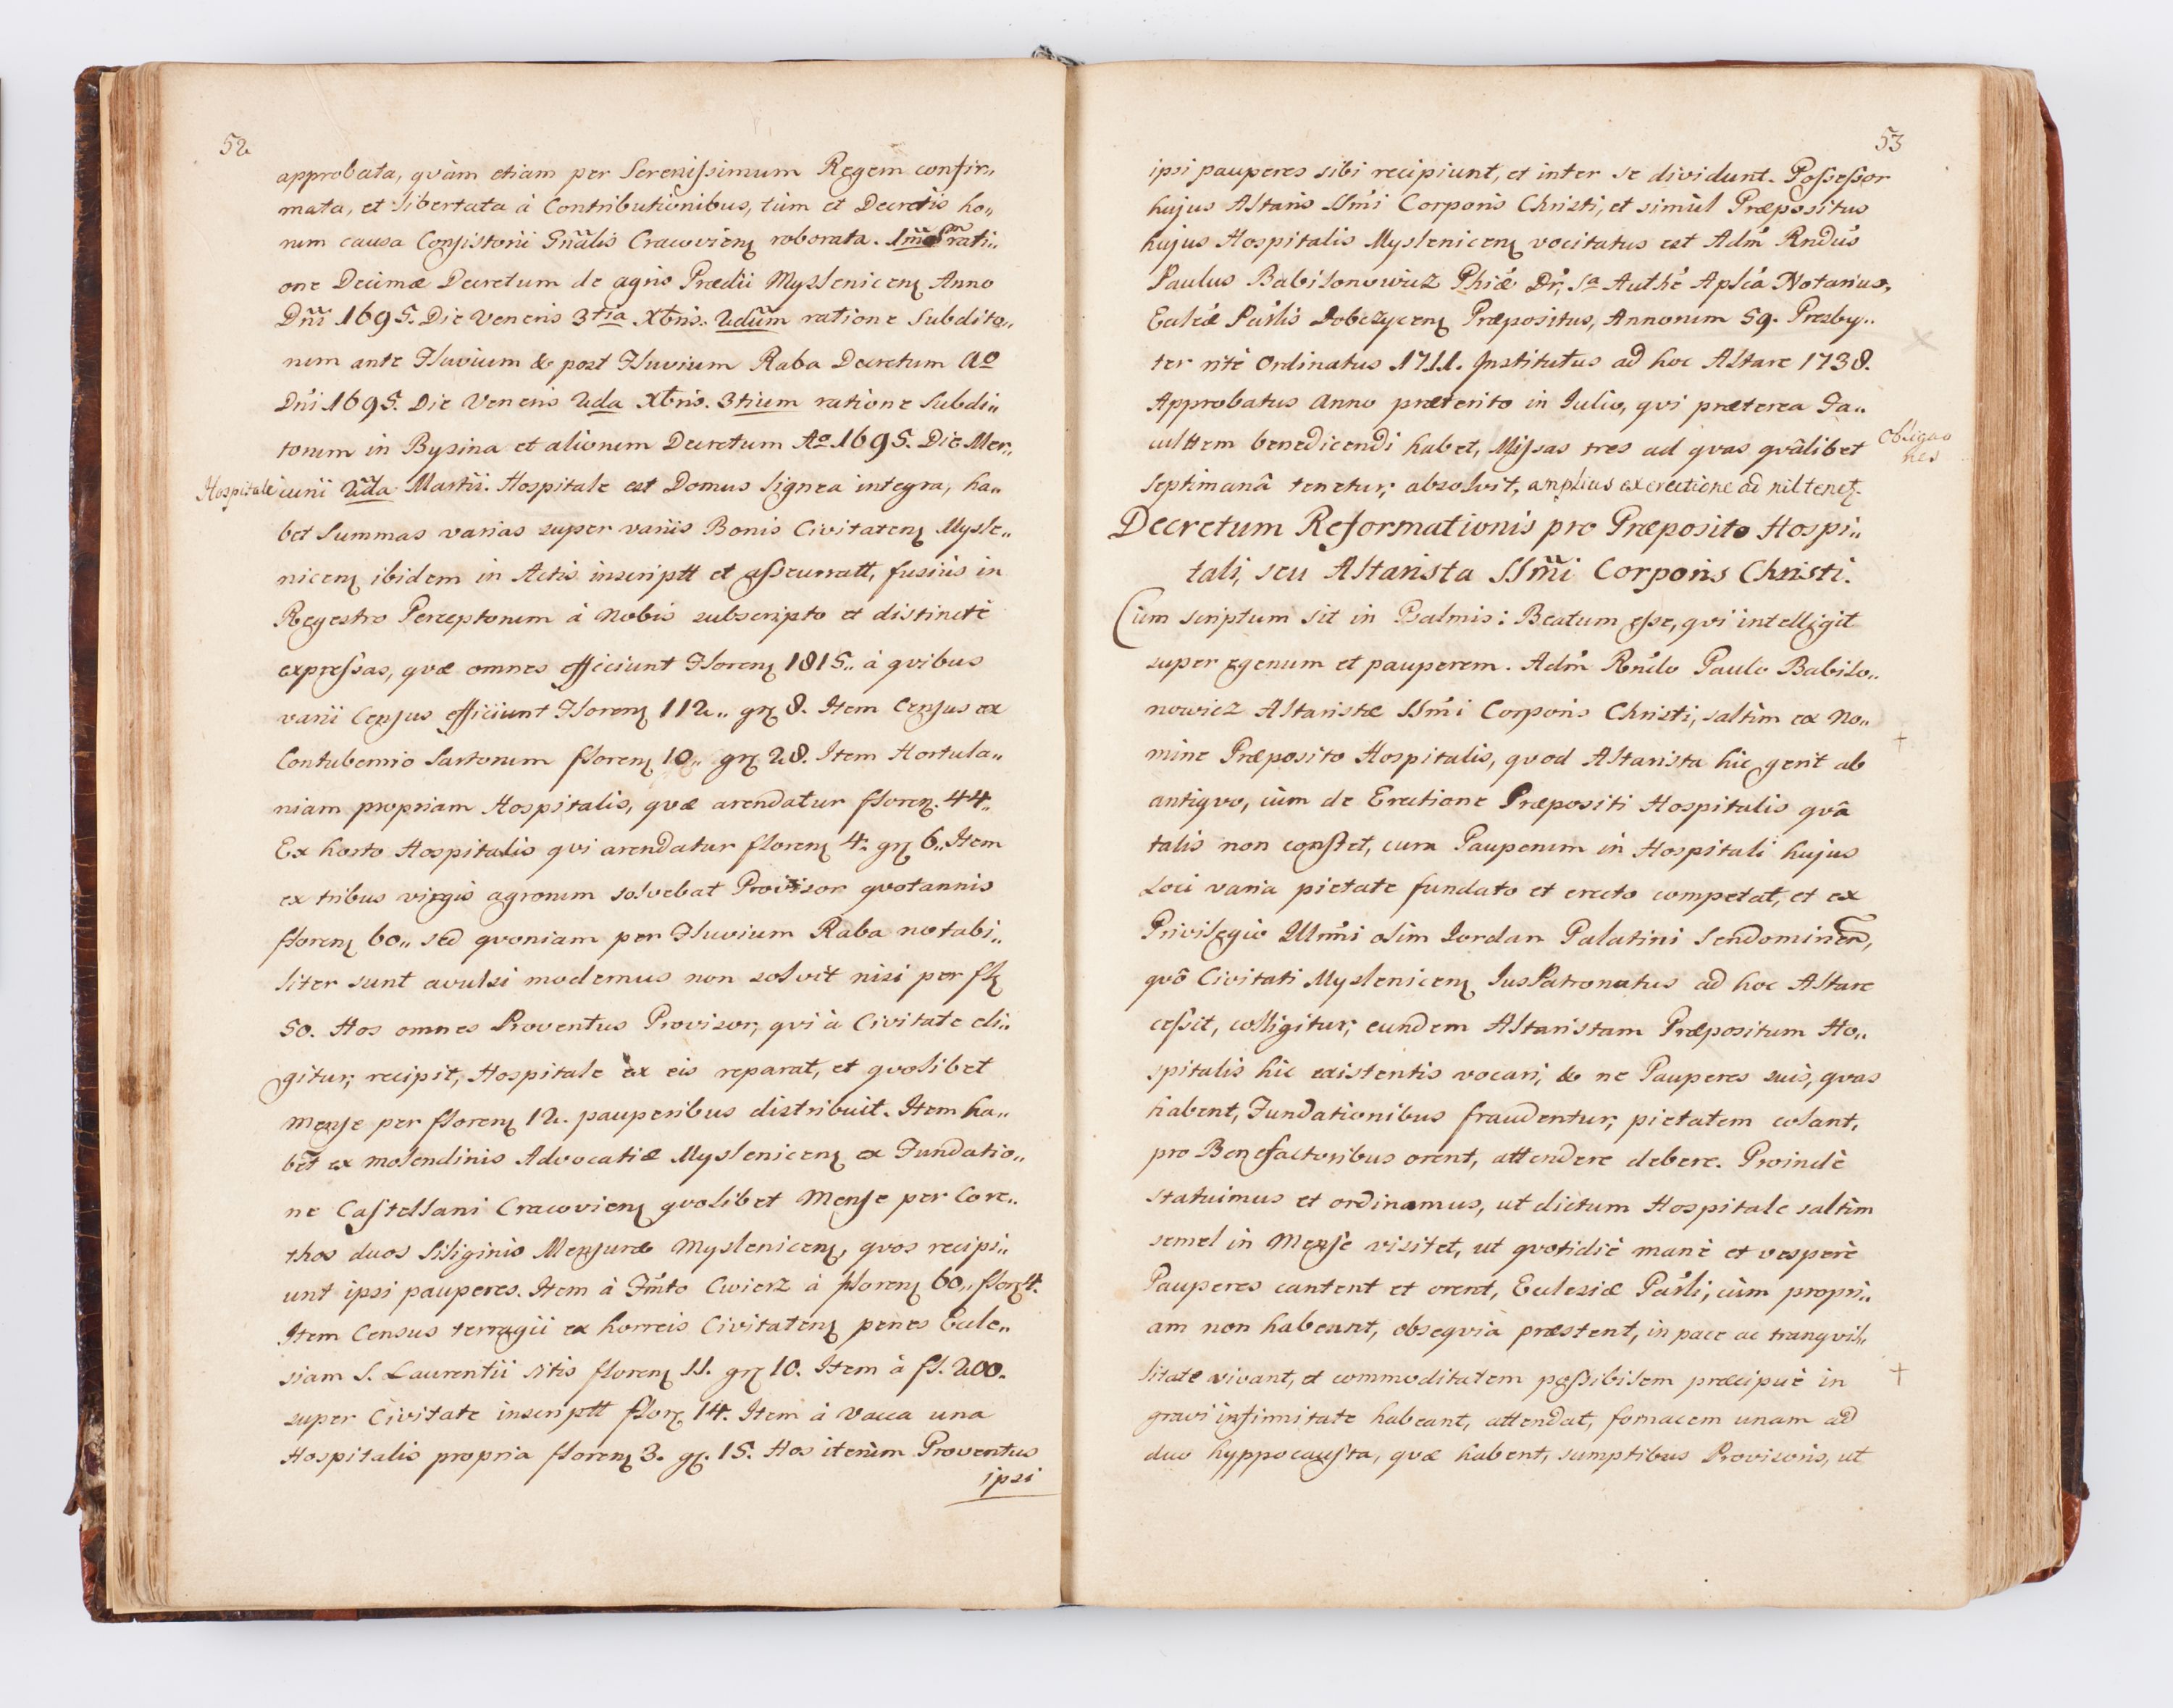 52
approbata, qvàm etiam per Serenissimum Regem confir„
mata, et libertata à Contributionibus, tùm et Decretis ho„
rum causa Consistorii Gñalis Cracovien roborata. 1mũ rati„
one Decimæ Decretum de agris Prædii Myslenicen Anno
Dñi 1695. Die Veneris 3tia Xbris. 2dũm ratione Subdito„
rum ante Fluvium & post Fluvium Raba Decretum Ao
Dñi 1695. Die Veneris 2da Xbris. 3tium ratione Subdi„
torum in Bysina et aliorum Decretum Ao 1695. Die Mer„
Hospitale curii 22da Martii. Hospitale est Domus lignea integra, ha„
bet Summas varias super variis Bonis Civitaten Mysle„
nicen ibidem in Actis inscriptt et assecuratt, fusiùs in
Regestro Perceptorum à Nobis subscripto et distinctè
expressas, qvæ omnes efficiunt Floren 1815„ à qvibus
varii Census efficiunt Floren 112„ gr 8. Item Census ex
Contubernio Sartorum floren 10„ gr 28. Item Hortula„
niam propriam Hospitalis, qvæ arendatur floren. 44„
Ex horto Hospitalis qvi arendatur floren 4„ gr 6„ Item
ex tribus virgis agrorum solvebat Provisor qvotannis
floren 60„ sed qvoniam per Fluvium Raba notabi„
liter sunt avulsi modernus non solvit nisi per fl
50. Hos omnes Proventus Provisor, qvi à Civitate eli„
gitur, recipit, Hospitale ex eis reparat, et qvolibet
Mense per floren 12. pauperibus distribuit. Item ha„
bet ex molendinis Advocatiæ Myslenicen ex Fundatio„
ne Castellani Cracovien qvolibet Mense per Core„
thos duos Siliginis Mensuræ Myslenicen, qvos recipi„
unt ipsi pauperes. Item à Fm̃to Cwierz à floren 60„ flor 4.
Item Census terragii ex horreis Civitaten penes Eccle„
siam S. Laurentii sitis floren 11. gr 10. Item à fl. 200.
super Civitate inscriptt flor 14. Item à Vacca una
Hospitalis propria floren 3. gr. 15. Hos iterùm Proventus
ipsi
53
ipsi pauperes sibi recipiunt, et inter se dividunt. Possessor
hujus Altaris SSm̃i Corporis Christi, et simùl Præpositus
hujus Hospitalis Myslenicen vocitatus est Adm̃ Rndus
Paulus Babilonowicz Phiæ Dr, Sa Authe Aplica Notarius,
Eccliæ Parlis Dobczycen Præpositus, Annorum 59. Presby„
ter ritè Ordinatus 1711. Institutus ad hoc Altare 1738.
Approbatus Anno præterito in Iulio, qvi præterea Fa„
culttem benedicendi habet, Missas tres ad qvas qvâlibet
Obligao
nes
Septimanâ tenetur, absolvit, amplius ex erectione ad nil tenet.
Decretum Reformationis pro Præposito Hospi„
tali, seu Altarista SSm̃i Corporis Christi.
Cùm scriptum sit in Psalmis: Beatum esse, qvi intelligit
super egenum et pauperem. Adm̃ Rndo Paulo Babilo„
nowicz Altaristæ SSm̃i Corporis Christi, saltìm ex No„
mine Præposito Hospitalis, qvod Altarista hic gerit ab
antiqvo, cùm de Erectione Præpositi Hospitalis qvâ
talis non constet, cura Pauperum in Hospitali hujus
Loci varia pietate fundato et erecto competat, et ex
Privilegio Illmi olim Iordan Palatini Sendominen,
qvô Civitati Myslenicen Ius Patronatus ad hoc Altare
cessit, colligitur, eundem Altaristam Præpositum Ho„
spitalis hic existentis vocari, & ne Pauperes suis, qvas
habent, Fundationibus fraudentur, pietatem colant,
pro Benefactoribus orent, attendere debere. Proindè
statuimus et ordinamus, ut dictum Hospitale saltìm
semel in Mense visitet, ut qvotidiè manè et vesperè
Pauperes cantent et orent, Ecclesiæ Parli, cùm propri„
am non habeant, obseqvia præstent, in pace ac tranqvil„
litate vivant, et commoditatem possibilem præcipuè in
gravi infirmitate habeant, attendat, fornacem unam ad
duo hyppocausta, qvæ habent, sumptibus Provisoris, ut